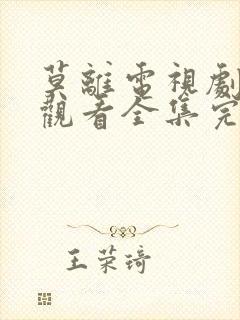 莫離電視劇
觀看全集完
王荣琦